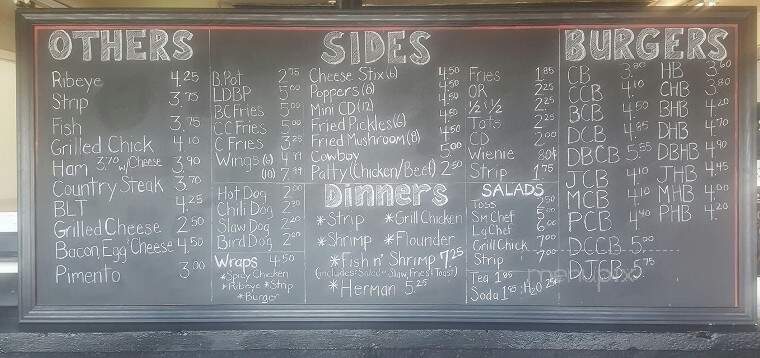 OTHERS
Ribeye 4.25
Strip 3.75
Fish 3.75
Grilled Chick 4.10
Ham 3.70 w/Cheese 3.90
Country Steak 3.70
BLT 4.25
Grilled Cheese 2.50
Bacon, Egg Cheese 4.50
Pimento 3.00
SIDES
B.Pot 2.75
LDBP 5.00
BC Fries 5.00
CC Fries 5.00
C Fries 3.25
Wings (6) 4.99
(10) 7.99
Cheese Stix (6) 4.50
Poppers (8) 4.50
Mini CD (12) 4.50
Fried Pickles (6) 4.50
Fried Mushroom (8) 4.50
Cowboy 5.00
Patty (Chicken/Beef) 2.50
Fries 1.85
OR 2.25
½ & ½ 2.25
Tots 2.25
CD 2.00
Wienie 80¢
Strip 1.75
Hot Dog 2.00
Chili Dog
Slaw Dog
Bird Dog
Wraps 4.50
*Spicy Chicken
*Ribeye *Strip
*Burger
Dinners
*Strip *Grill Chicken
*Shrimp *Flounder
*Fish n' Shrimp 7.25
(includes: Salad or Slaw, Fries & Toast)
*Herman 5.25
SALADS
Toss
Sm Chef
Lg Chef
Grill Chick 7.00
Strip 7.00
Tea 1.95
Soda 1.95 : H₂O 25¢
BURGERS
CB
CCB 4.10
BCB 4.50
DCB 4.85
DBCB 5.85
JCB 4.10
MCB 4.10
PCB 4.40
DCCB 5.20
DJCB 5.75
HB 3.60
CHB 3.80
BHB 4.20
DHB 4.70
DBHB 4.90
JHB 4.95
MHB 4.00
PHB 4.20
menupix